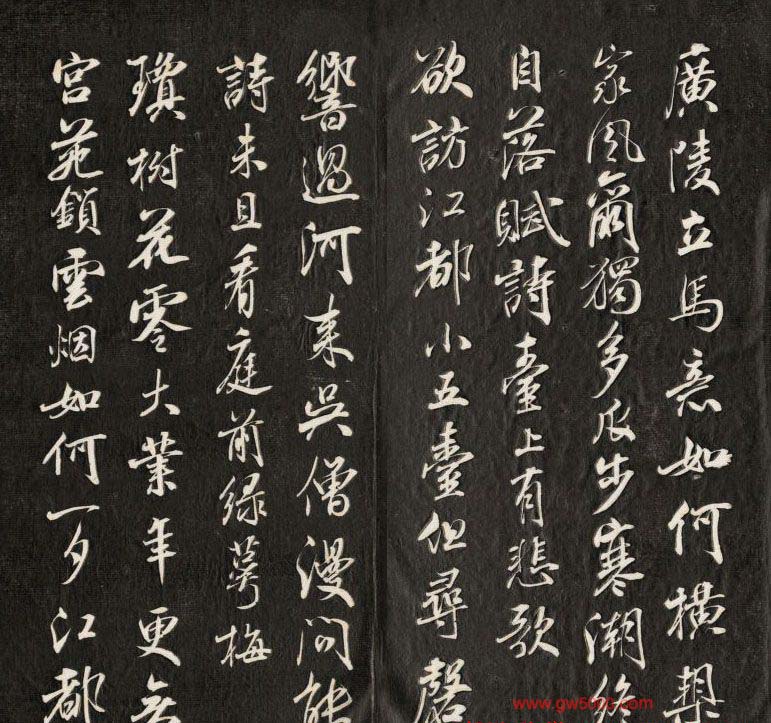 廣陵立馬意如何橫槊
家風爾獨多瓜步寒潮條
自落賦詩臺上有悲歌
欲訪江都小五臺但尋磬
響過河來吳僧漫問能
詩未且看庭前綠萼梅
瓊樹花零大業年更無
宮苑鎖雲烟如何一夕江都